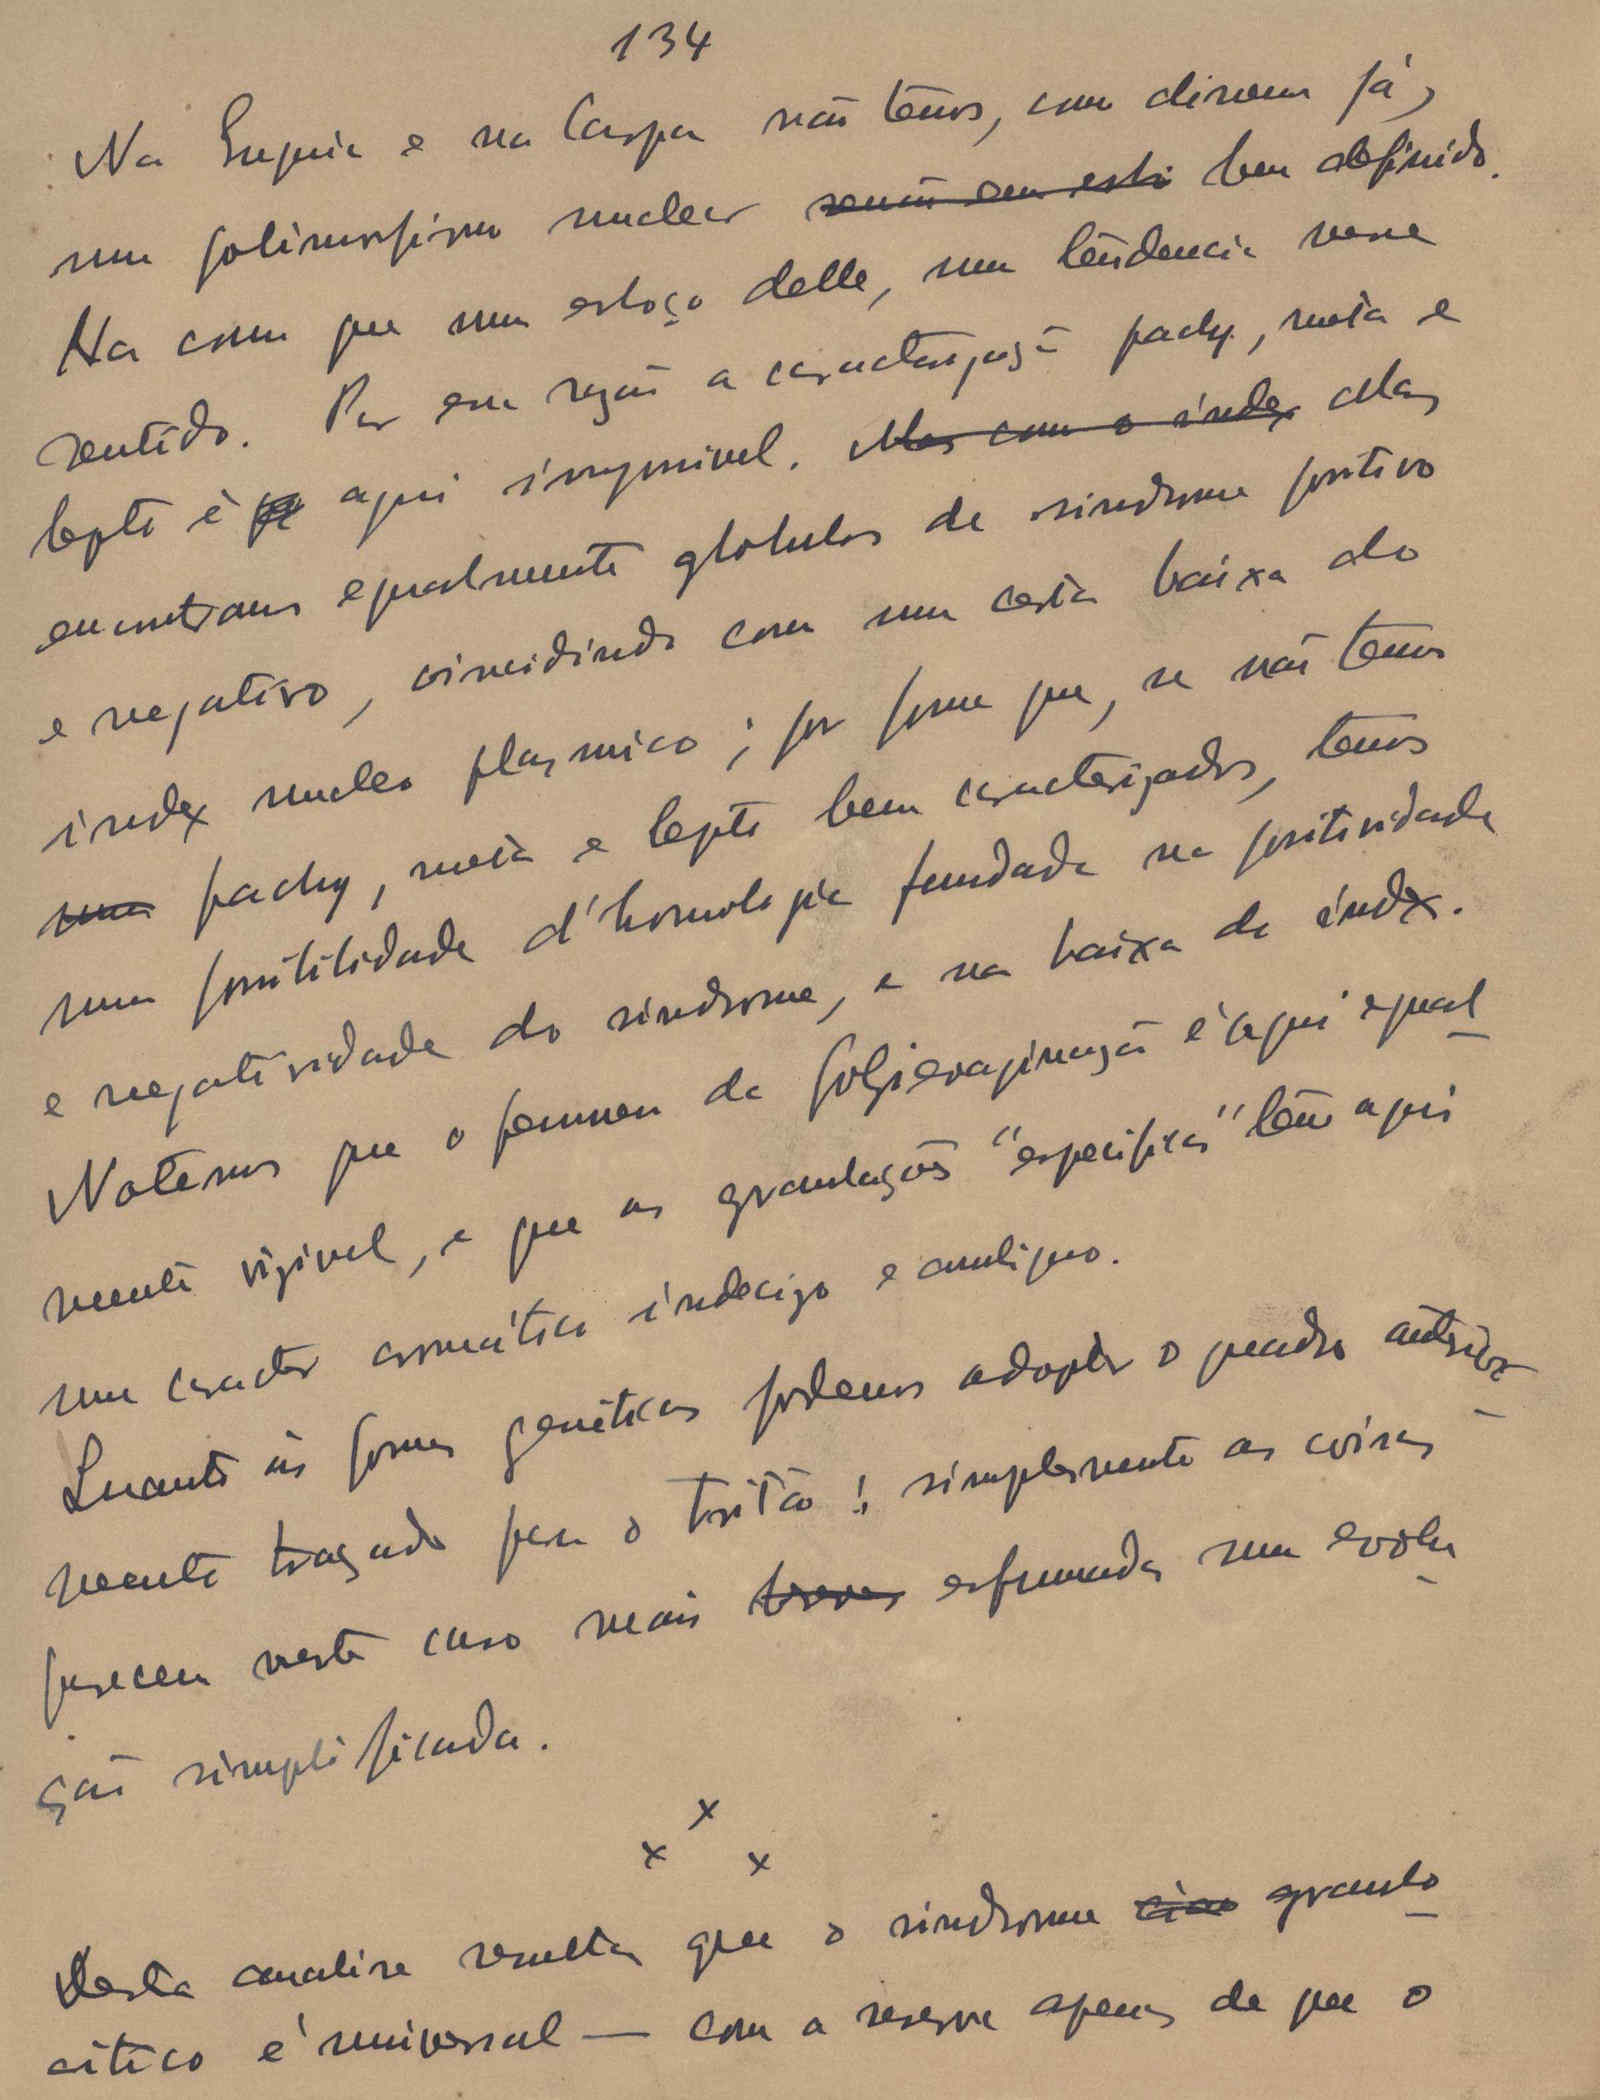 134
Na Enguia e na Carpa não temos, como dissemos já,
um polimorfismo nuclear senão em esbo bem definido.
Ha como que um esboço delle, uma tendencia nesse
sentido. Por essa razão a caracterização pachy, meta e
lepto é aqui impossivel. Mas como o index Mas
encontramos egualmente globulos de sindrome positivo
e negativo, coincidindo com uma certa baixa do
index nucleo plasmico; por forma que, se não temos
uma pachy, meta e lepto bem caracterizados, temos
uma possibilidade d'homologia fundada na positividade
e negatividade do sindrome, e na baixa do index.
Notemos que o fenomen da polsievaginação é aqui egual-
mente visivel, e que as granulações "especificas" têm aqui
um caracter cromático indeciso e ambiguo.
Quanto ás formas genéticas podemos adoptar o quadro anterior-
mente traçado para o tritão: simplesmente as coisas
parecem neste caso mais esfumadas numa evolu-
ção simplificada.
x x x
Desta analise resulta que o sindrome granulo-
citico é universal — com a reserva apenas de que o